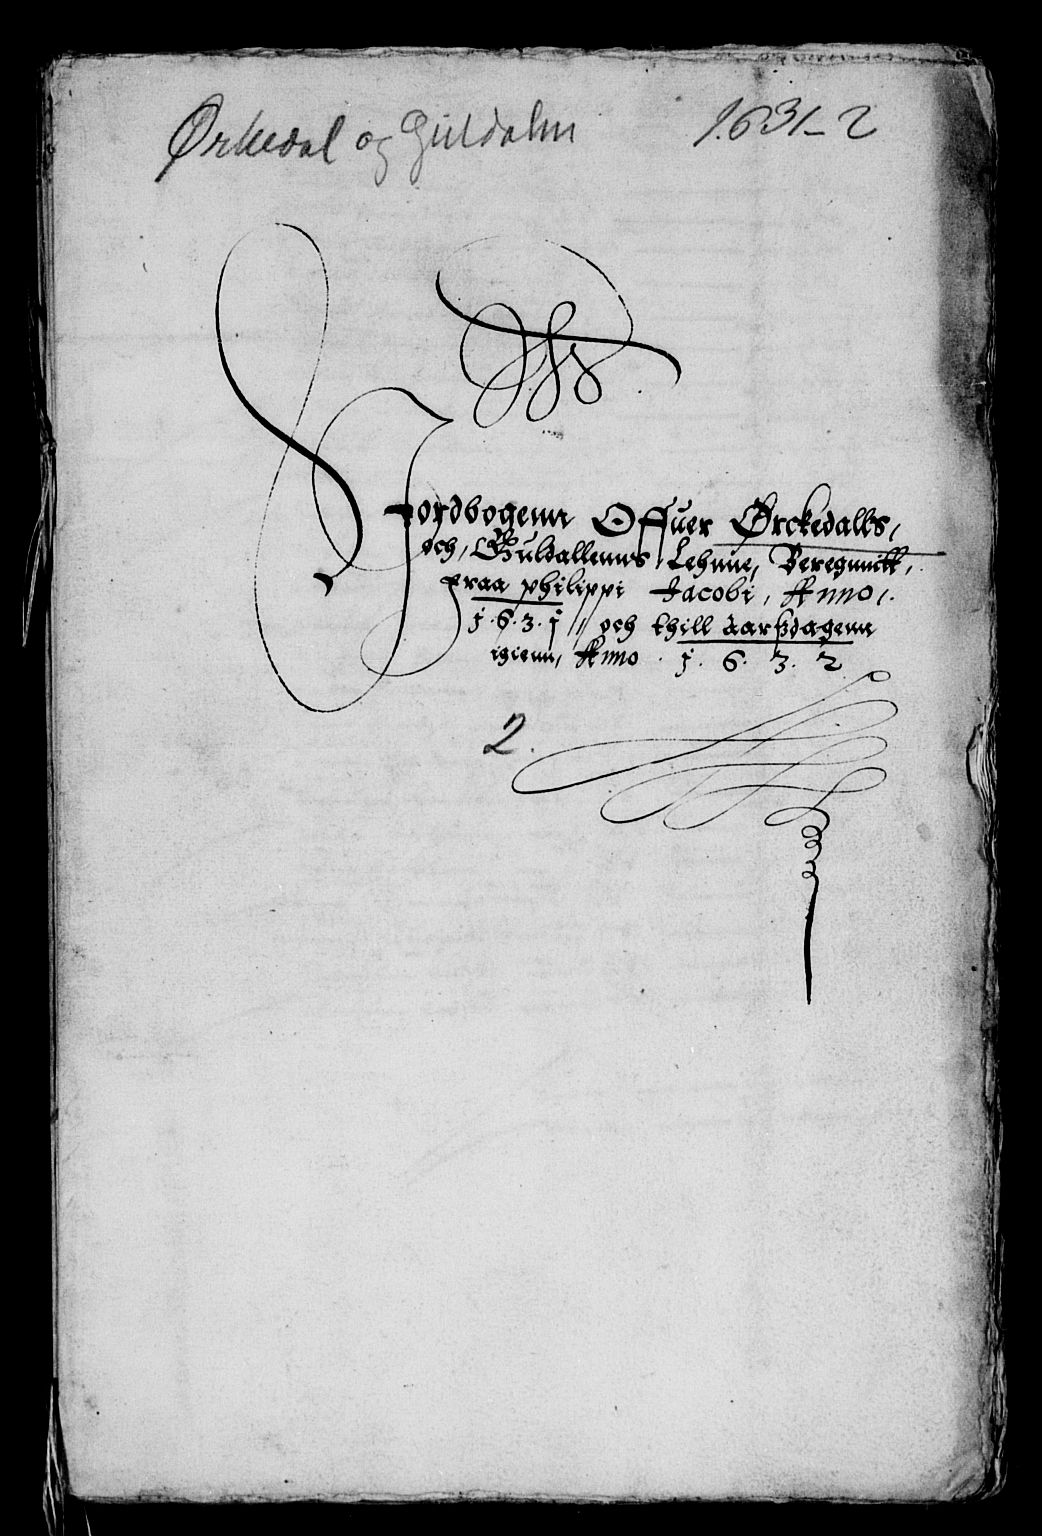 Ørkedal og Guldalen 1631-2
Jordbogenn Offuer Ørckedalls,
och, Guldallenns Lehnne, Beregnnitt,
fraa philippi Jacobi, Anno,
j.6.3.j // och thill Aarßdagenn
igienn, Anno. j. 6. 3. 2
2.